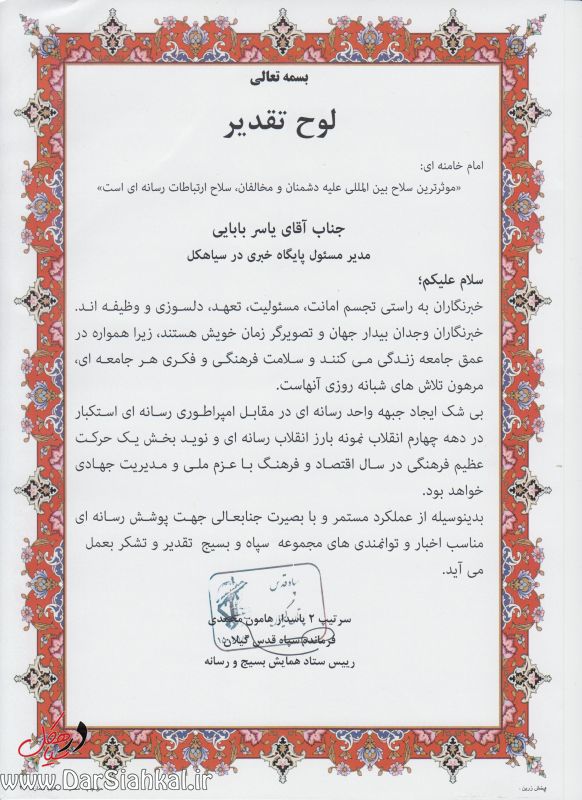 بسمه تعالی
لوح تقدیر
امام خامنه ای:
«موثرترین سلاح بین المللی علیه دشمنان و مخالفان، سلاح ارتباطات رسانه ای است»
جناب آقای یاسر بابایی
مدیر مسئول پایگاه خبری در سیاهکل
سلام علیکم؛
خبرنگاران به راستی تجسم امانت، مسئولیت، تعهد، دلسوزی و وظیفه اند.
خبرنگاران وجدان بیدار جهان و تصویرگر زمان خویش هستند، زیرا همواره در
عمق جامعه زندگی می کنند و سلامت فرهنگی و فکری هر جامعه ای،
مرهون تلاش های شبانه روزی آنهاست.
بی شک ایجاد جبهه واحد رسانه ای در مقابل امپراطوری رسانه ای استکبار
در دهه چهارم انقلاب نمونه بارز انقلاب رسانه ای و نوید بخش یک حرکت
عظیم فرهنگی در سال اقتصاد و فرهنگ با عزم ملی و مدیریت جهادی
خواهد بود.
بدینوسیله از عملکرد مستمر و با بصیرت جنابعالی جهت پوشش رسانه ای
مناسب اخبار و توانمندی های مجموعه سپاه و بسیج تقدیر و تشکر بعمل
می آید.
سپاه قدس
سرتیپ ۲ پاسدار هامون محمدی
فرمانده سپاه قدس گیلان
رییس ستاد همایش بسیج و رسانه
در سیاهکل
www.DarSiahkal.ir
پخش زرین